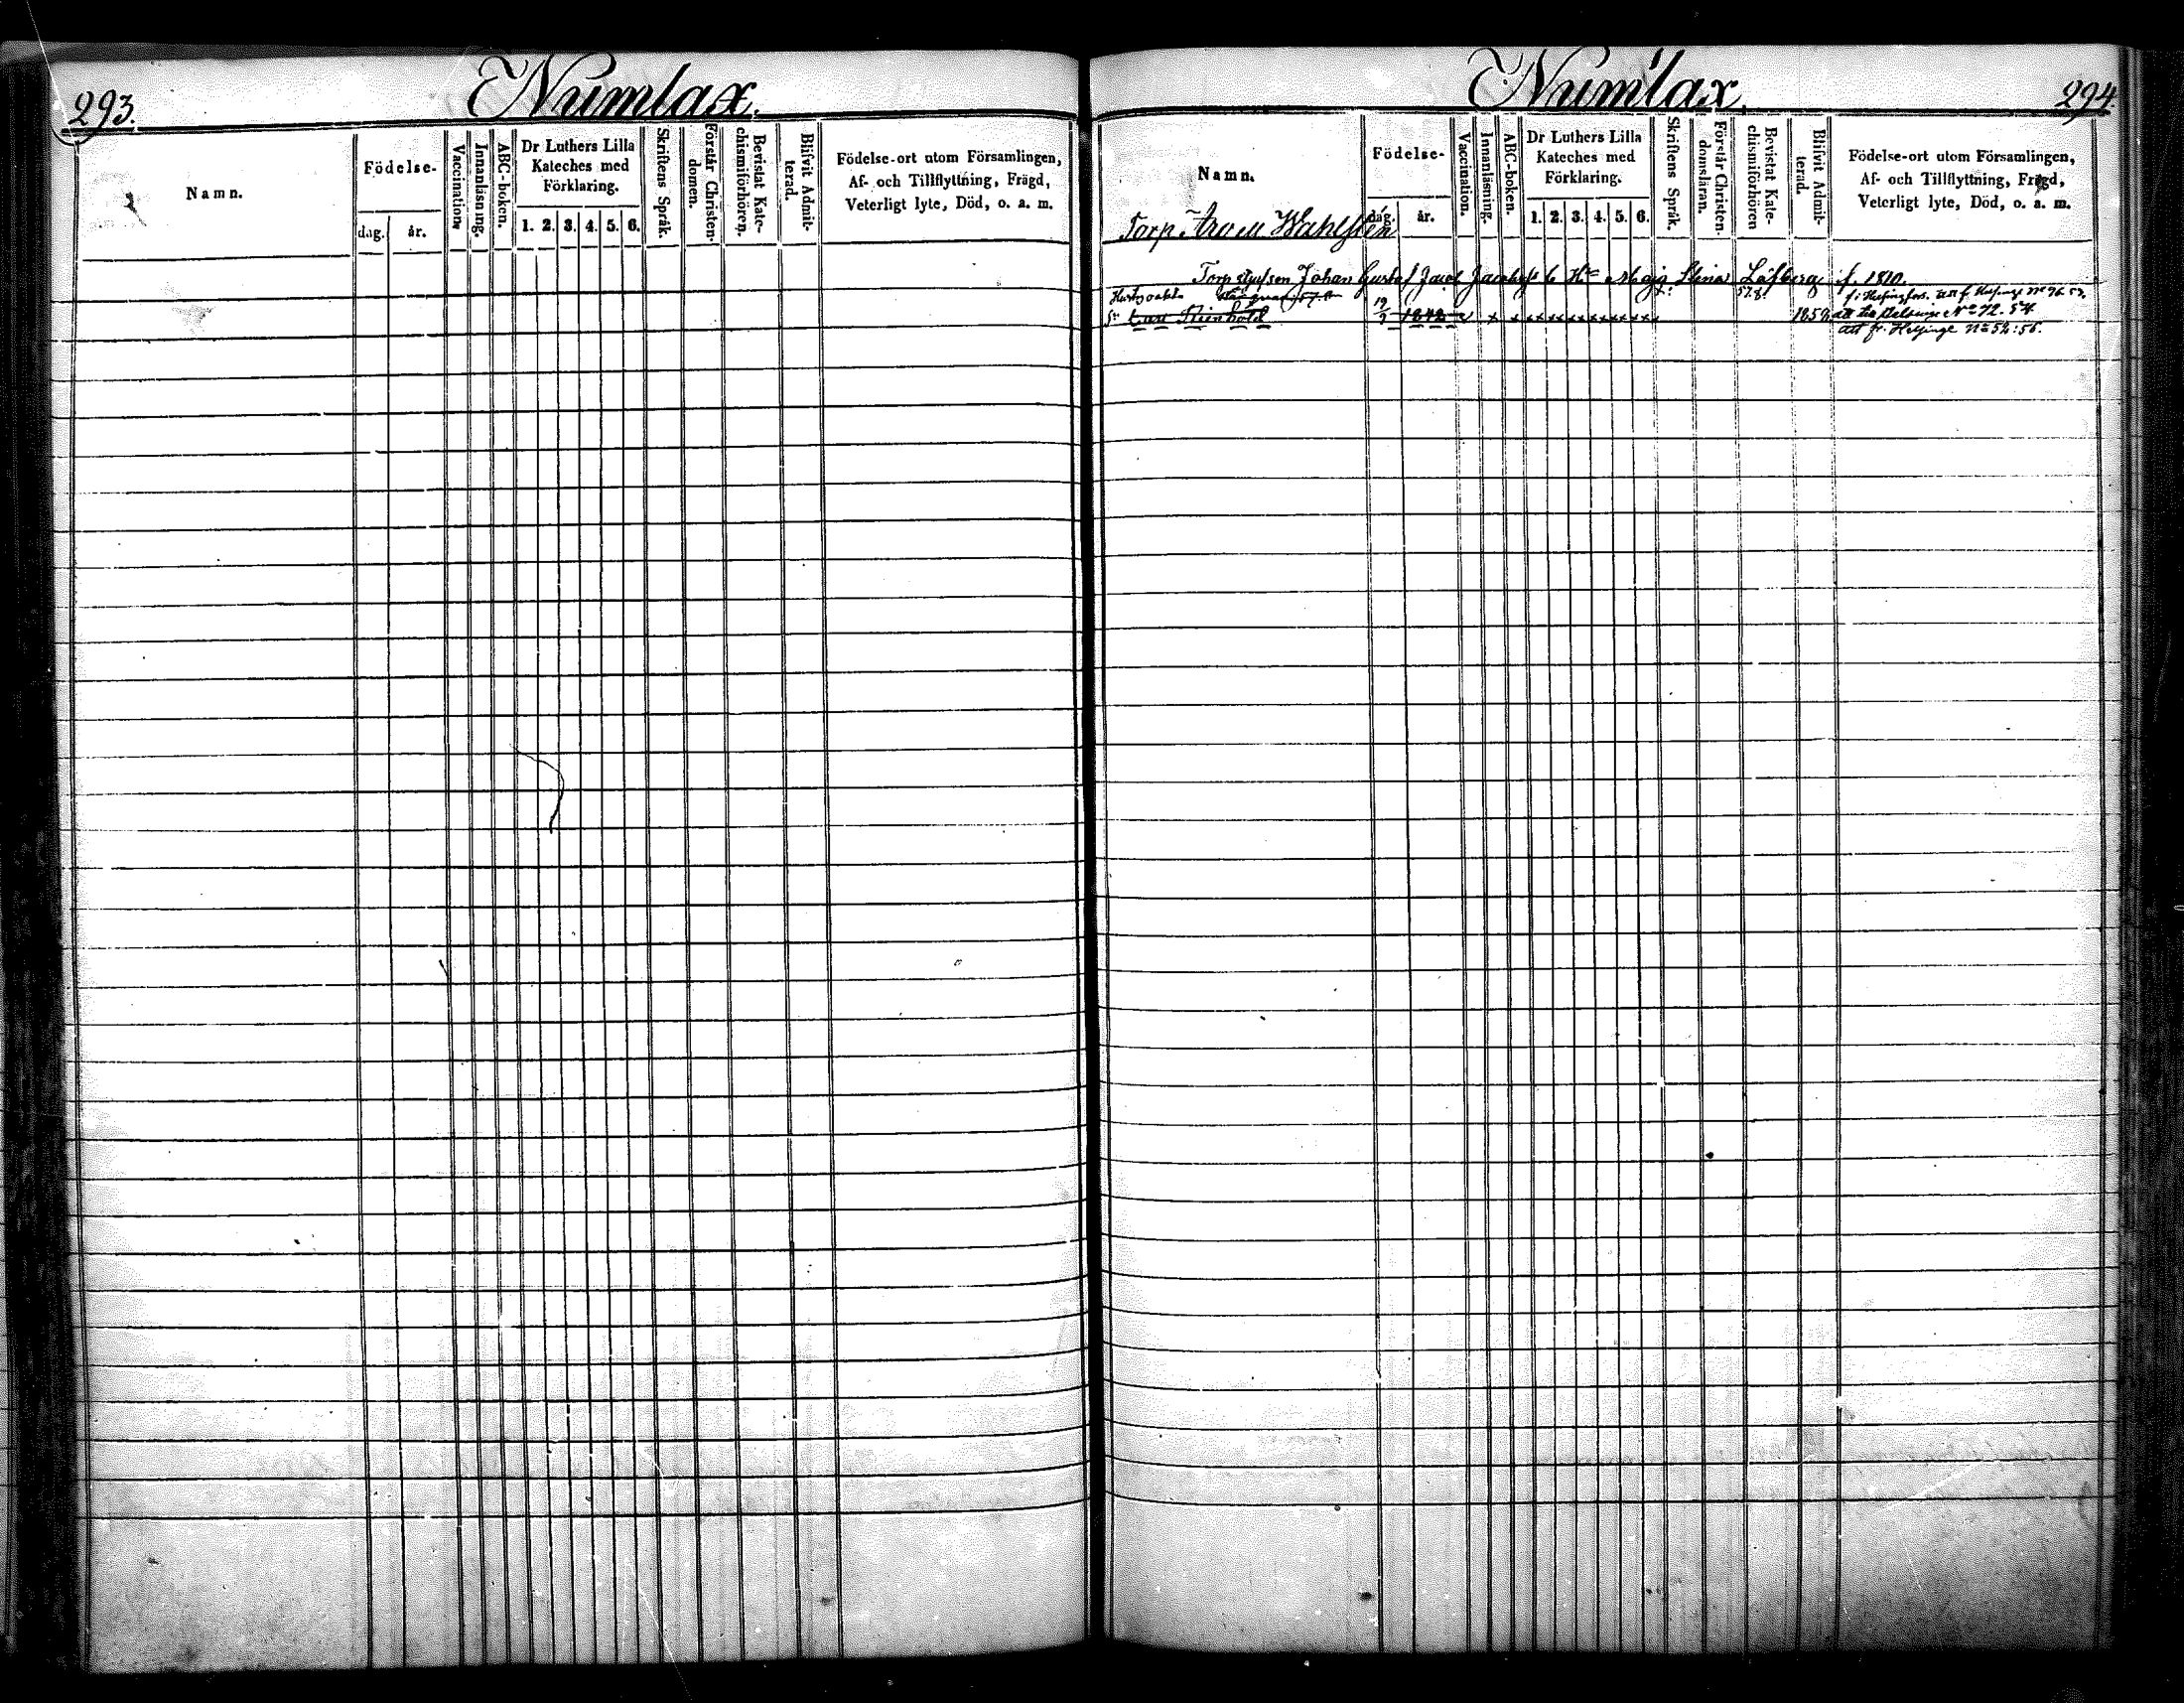 293.
Numlax.
Namn.
Födelse-
dag.
år.
Vaccination.
Innanläsning.
ABC-boken.
Dr Luthers Lilla
Kateches med
Förklaring.
1. 2. 3. 4. 5. 6.
Skriftens Språk.
Förstår Christen-
domen.
Bevistat Kate-
chismiförhören.
Blifvit Admit-
terad.
Födelse-ort utom Församlingen,
Af- och Tillflyttning, Frägd,
Veterligt lyte, Död, o. a. m.
Numlax.
294.
Namn.
Födelse-
dag.
år.
Vaccination.
Innanläsning.
ABC-boken.
Dr Luthers Lilla
Kateches med
Förklaring.
1. 2. 3. 4. 5. 6.
Skriftens Språk.
Förstår Christen-
domsläran.
Bevistat Kate-
chismiförhören
Blifvit Admit-
terad.
Födelse-ort utom Församlingen,
Af- och Tillflyttning, Frägd,
Veterligt lyte, Död, o. a. m.
Torp. Wahlsten
Johan Gustaf Maja Stina Löfberg f. 1810.
Carl Reinhold 19/9 1842 1859
fr. Helsinge No 52:56.